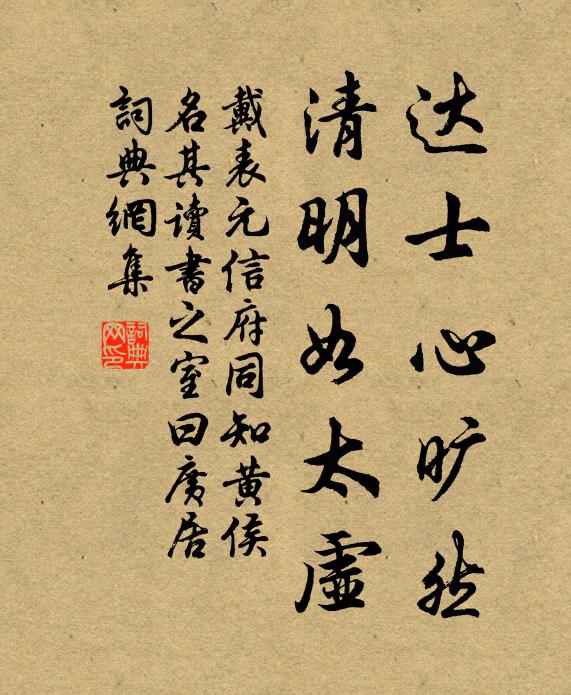 达士心旷然
清明如太虚
戴表元信府同知黄侯
名其读书之室曰广居
詞典網集
詞典网印